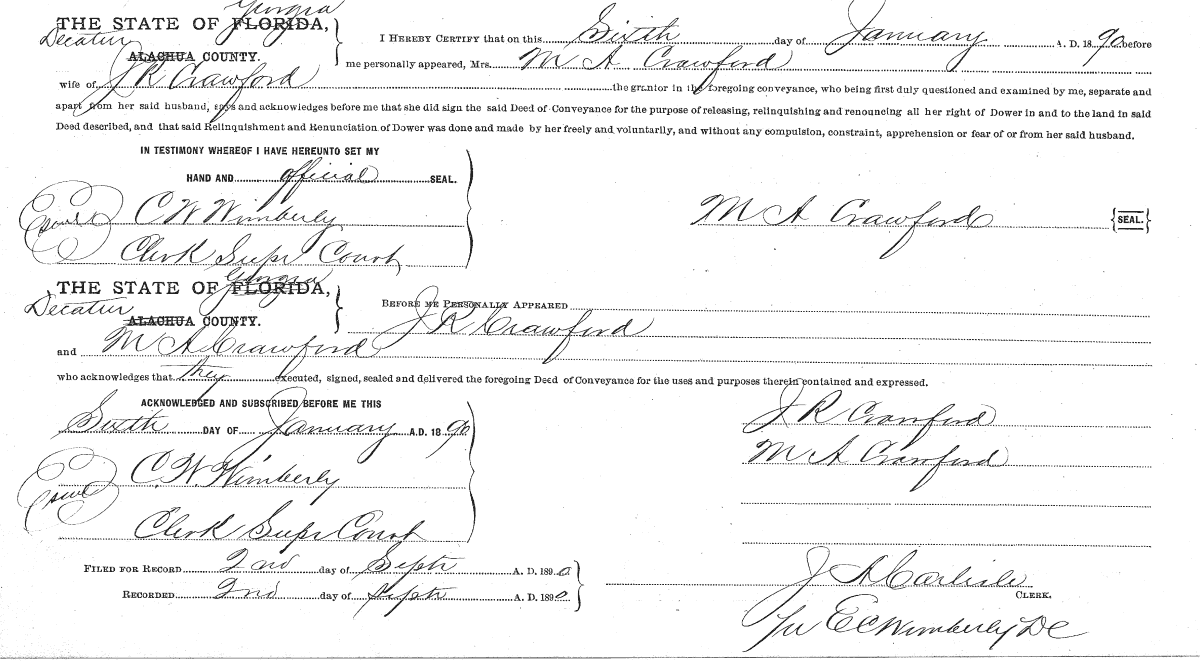 Georgia
THE STATE OF FLORIDA,
Decatur
ALACHUA COUNTY.
I HEREBY CERTIFY that on this Sixth day of January A. D. 18 90 before
me personally appeared, Mrs. M A Crawford
wife of J R Crawford the grantor in the foregoing conveyance, who being first duly questioned and examined by me, separate and
apart from her said husband, says and acknowledges before me that she did sign the said Deed of Conveyance for the purpose of releasing, relinquishing and renouncing all her right of Dower in and to the land in said
Deed described, and that said Relinquishment and Renunciation of Dower was done and made by her freely and voluntarily, and without any compulsion, constraint, apprehension or fear of or from her said husband.
IN TESTIMONY WHEREOF I HAVE HEREUNTO SET MY
HAND AND official SEAL.
C W Wimberly
M A Crawford {SEAL.}
Clerk Supr Court
Georgia
THE STATE OF FLORIDA,
Decatur
ALACHUA COUNTY.
BEFORE ME PERSONALLY APPEARED
J R Crawford
and M A Crawford
who acknowledges that they executed, signed, sealed and delivered the foregoing Deed of Conveyance for the uses and purposes therein contained and expressed.
ACKNOWLEDGED AND SUBSCRIBED BEFORE ME THIS
Sixth DAY OF January A.D. 18 90
J R Crawford
M A Crawford
C. W. Wimberly
Clerk Supr Court
FILED FOR RECORD 2nd day of Septr A. D. 1890
RECORDED 2nd day of Septr A. D. 1890
J A Carlisle
CLERK.
E C Wimberly DC